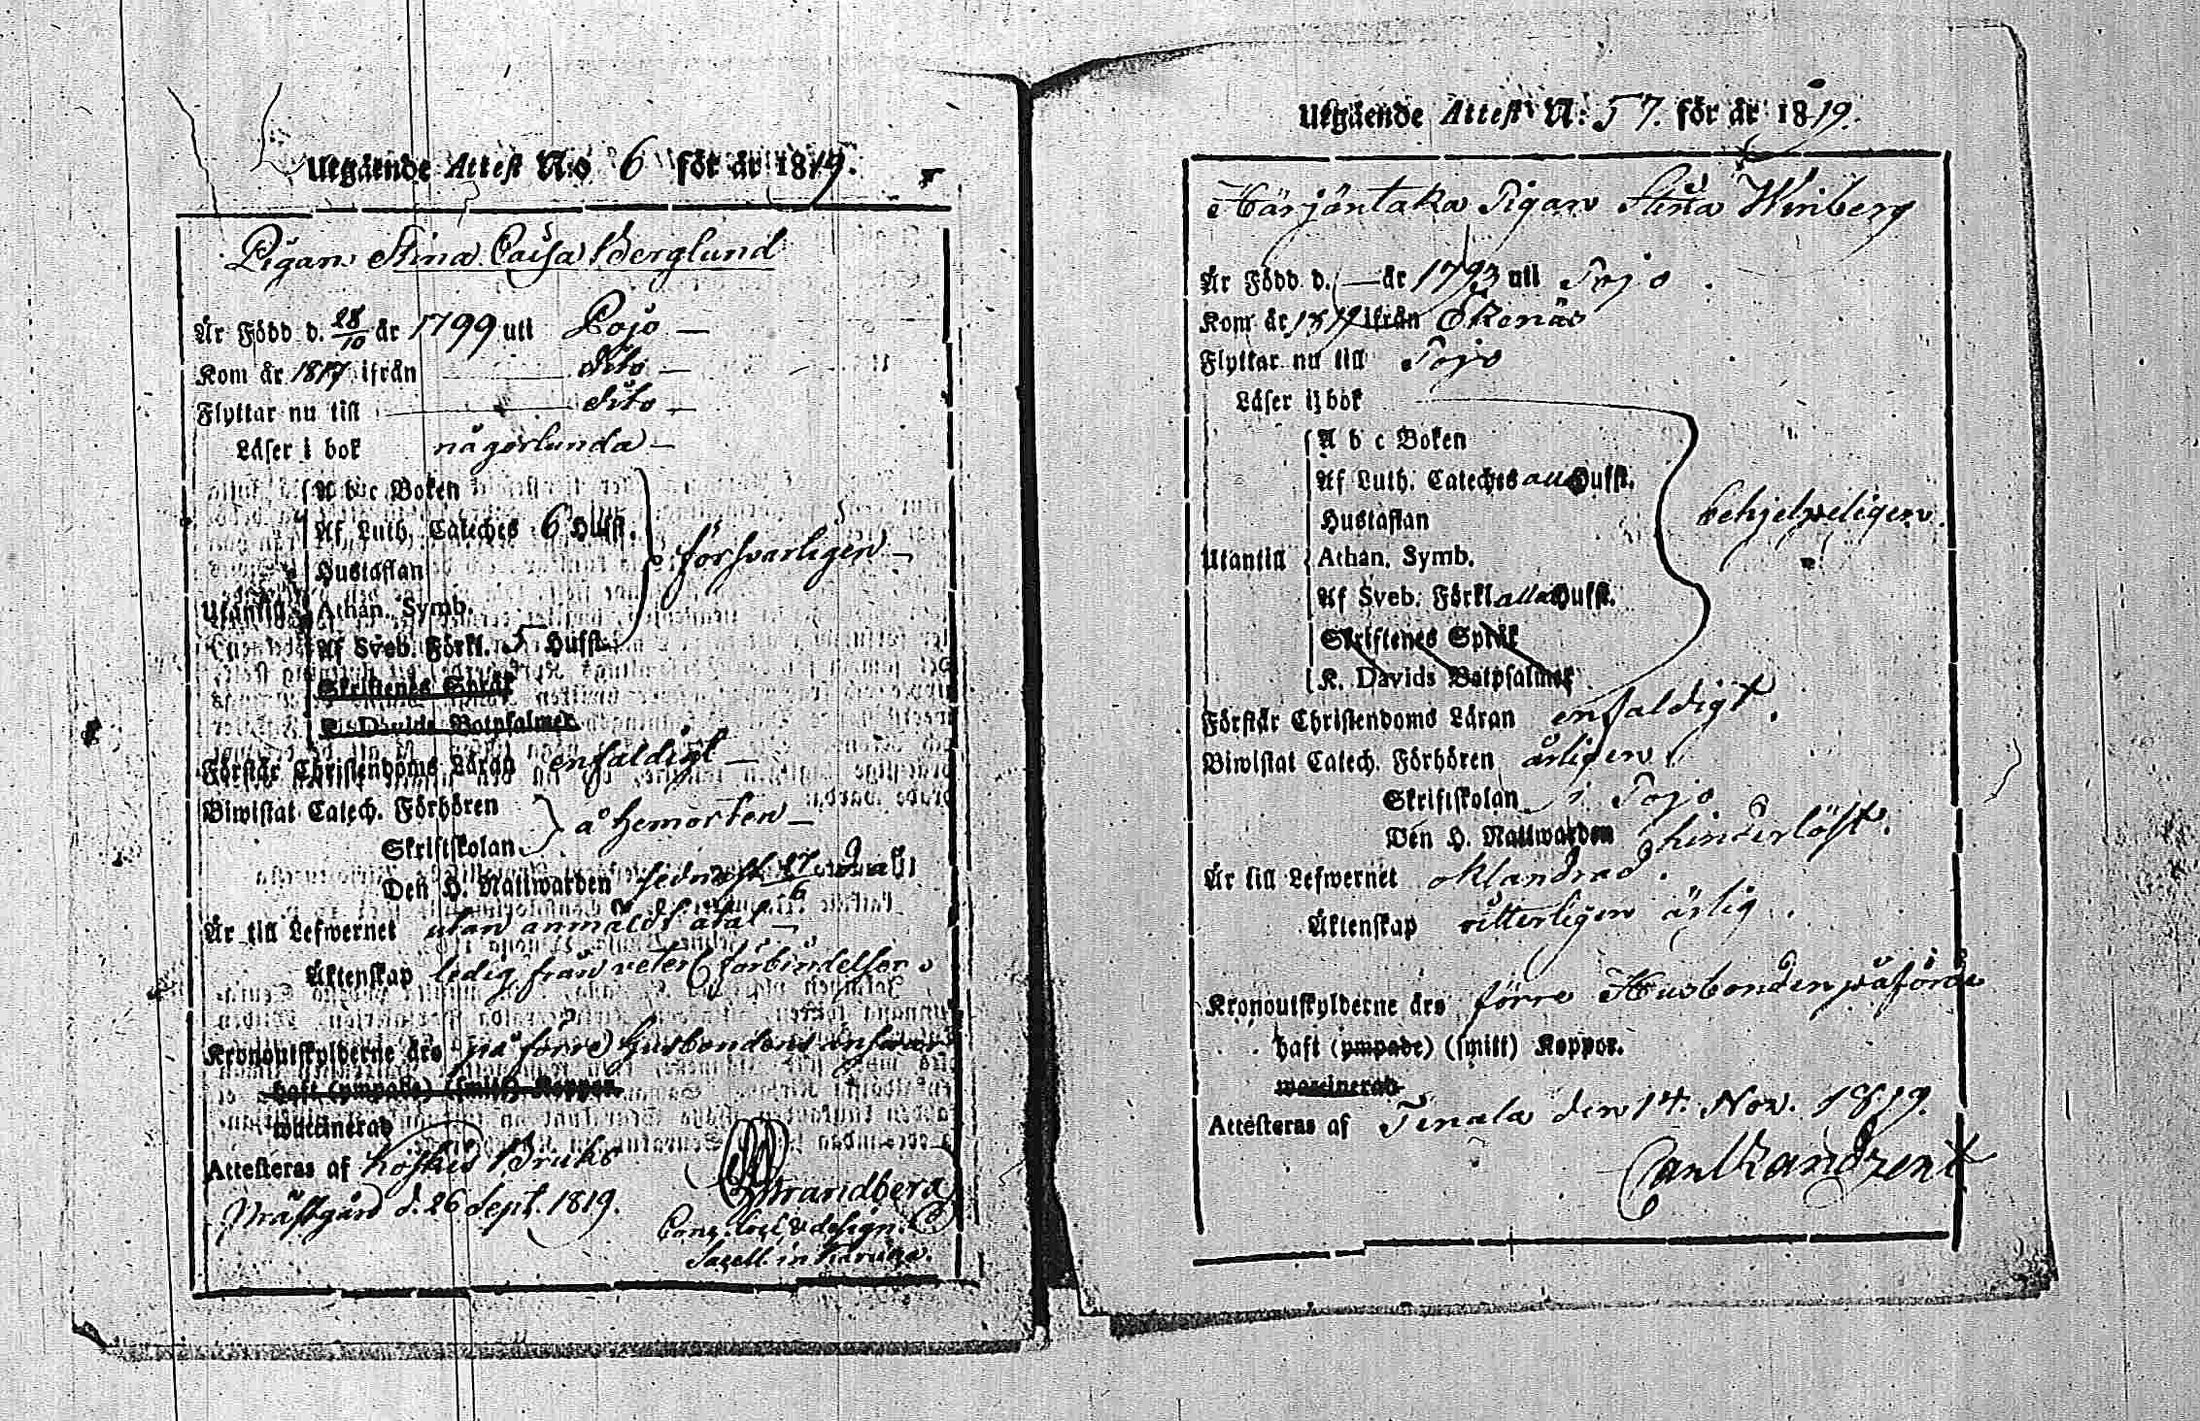 Utgående Attest N:o 6 för år 1819.
Pigan Stina Caisa Berglund
Är Född d. 28/10 år 1799 uti Pojo —
Kom år 1817 ifrån — Dito —
Flyttar nu till — Dito —
Läser i bok någorlunda —
A b c Boken
Af Luth. Cateches 6 Hufst.
Hustaflan
försvarligen —
Utantill Athan. Symb.
Af Sveb. Förkl. 5 Hufst.
Skriftenes Språk
K. Davids Botpsalmer
Förstår Christendoms Läran enfaldigt —
Biwistat Catech. Förhören
å hemorten —
Skriftskolan
Den H. Nattwarden sednast 27/6
Är till Lefwernet utan anmäldt åtal —
Äktenskap ledig från förbindelser
Kronoutskylderne äro på förre Husbondens ansvar
haft (ympade) (smitt) Koppor
waccinerad
Attesteras af Koskis Bruks
Prästgård d. 26 Sept. 1819.
Strandberg
Sacell. in Karis
Utgående Attest N: 57. för år 1819.
Härjäntaka Pigan Stina Winberg
Är Född d. — år 1793 uti Pojo.
Kom år 1811 ifrån Ekenäs
Flyttar nu till Pojo
Läser i bok
A b c Boken
Af Luth. Cateches alla Hufst.
Hustaflan
behjelpeligen.
Utantill Athan. Symb.
Af Sveb. Förkl. alla Hufst.
Skriftenes Språk
K. Davids Botpsalmer
Förstår Christendoms Läran enfaldigt.
Biwistat Catech. Förhören årligen
Skriftskolan i Pojo
Den H. Nattwarden hinderlöst.
Är till Lefwernet oklandrad.
Äktenskap witterligen ärlig.
Kronoutskylderne äro förre Husbonden påförde
haft (ympade) (smitt) Koppor.
waccinerad
Attesteras af Tenala den 14. Nov. 1819.